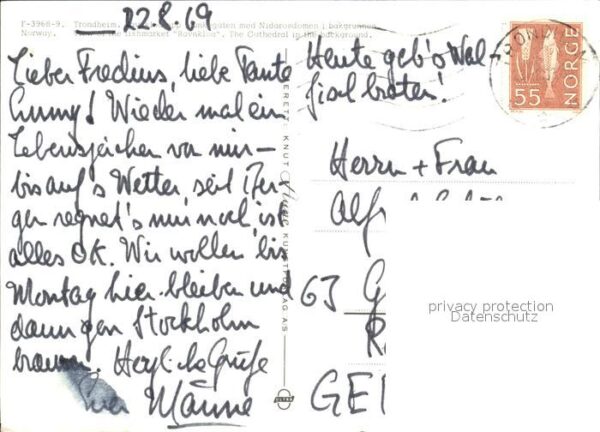 22.8 69
F-3968-9. Trondheim. med Nidarosdomen i bakgrunnen
Norway. the fishmarket "Ravnkloa". The Cathedral in the background.
Lieber Fredius, liebe Tante
! Wieder mal ein
Lebenszeichen von mir –
bis auf's Wetter, seit Ber-
gen regnet's nur noch, ist
alles OK. Wir wollen bis
Montag hier bleiben und
dann gen Stockholm
brausen. Herzliche Grüße
Euer Männe
Heute geb's Wal-
fischbraten!
NORGE
55
Herrn + Frau
Alf
63 G
GE
KUNSTFORLAG AS
privacy protection
Datenschutz